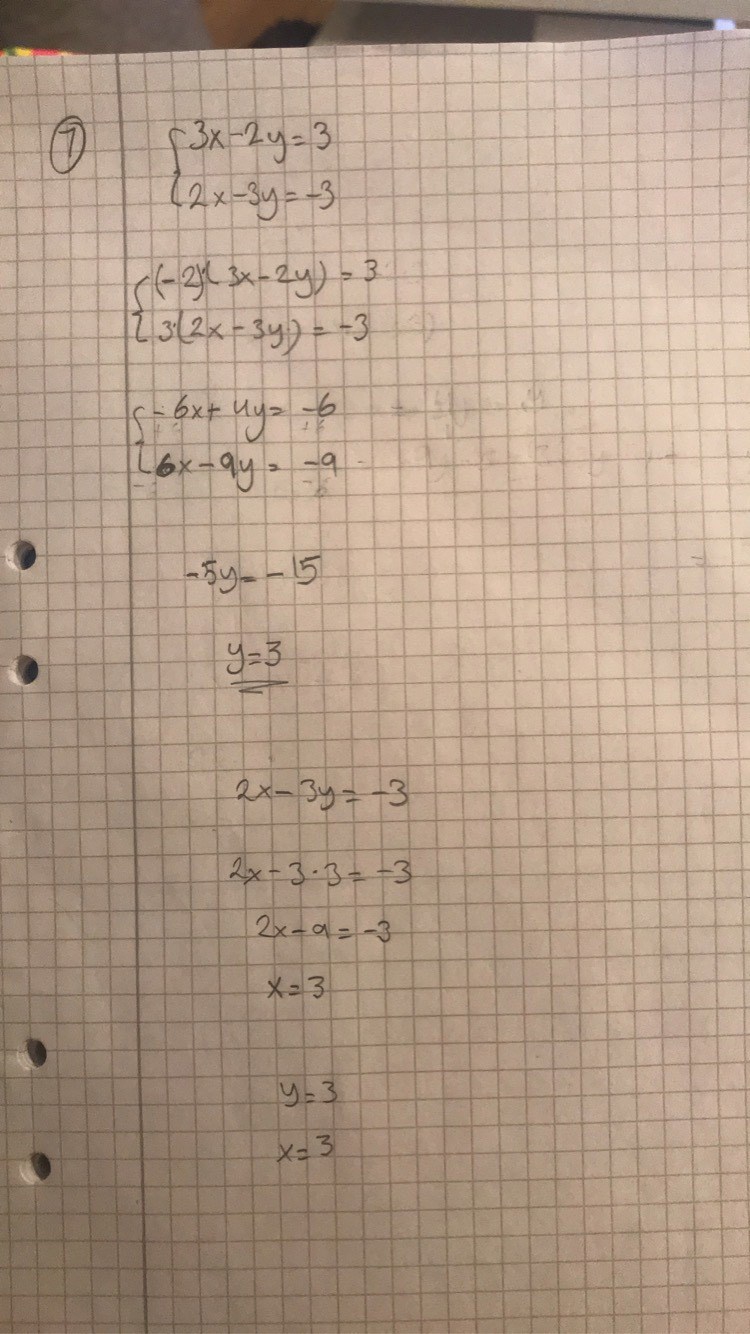 7
3x-2y=3
2x-3y=-3
(-2)·(3x-2y)=3
3·(2x-3y)=-3
-6x+4y=-6
6x-9y=-9
-5y=-15
y=3
2x-3y=-3
2x-3·3=-3
2x-9=-3
x=3
y=3
x=3